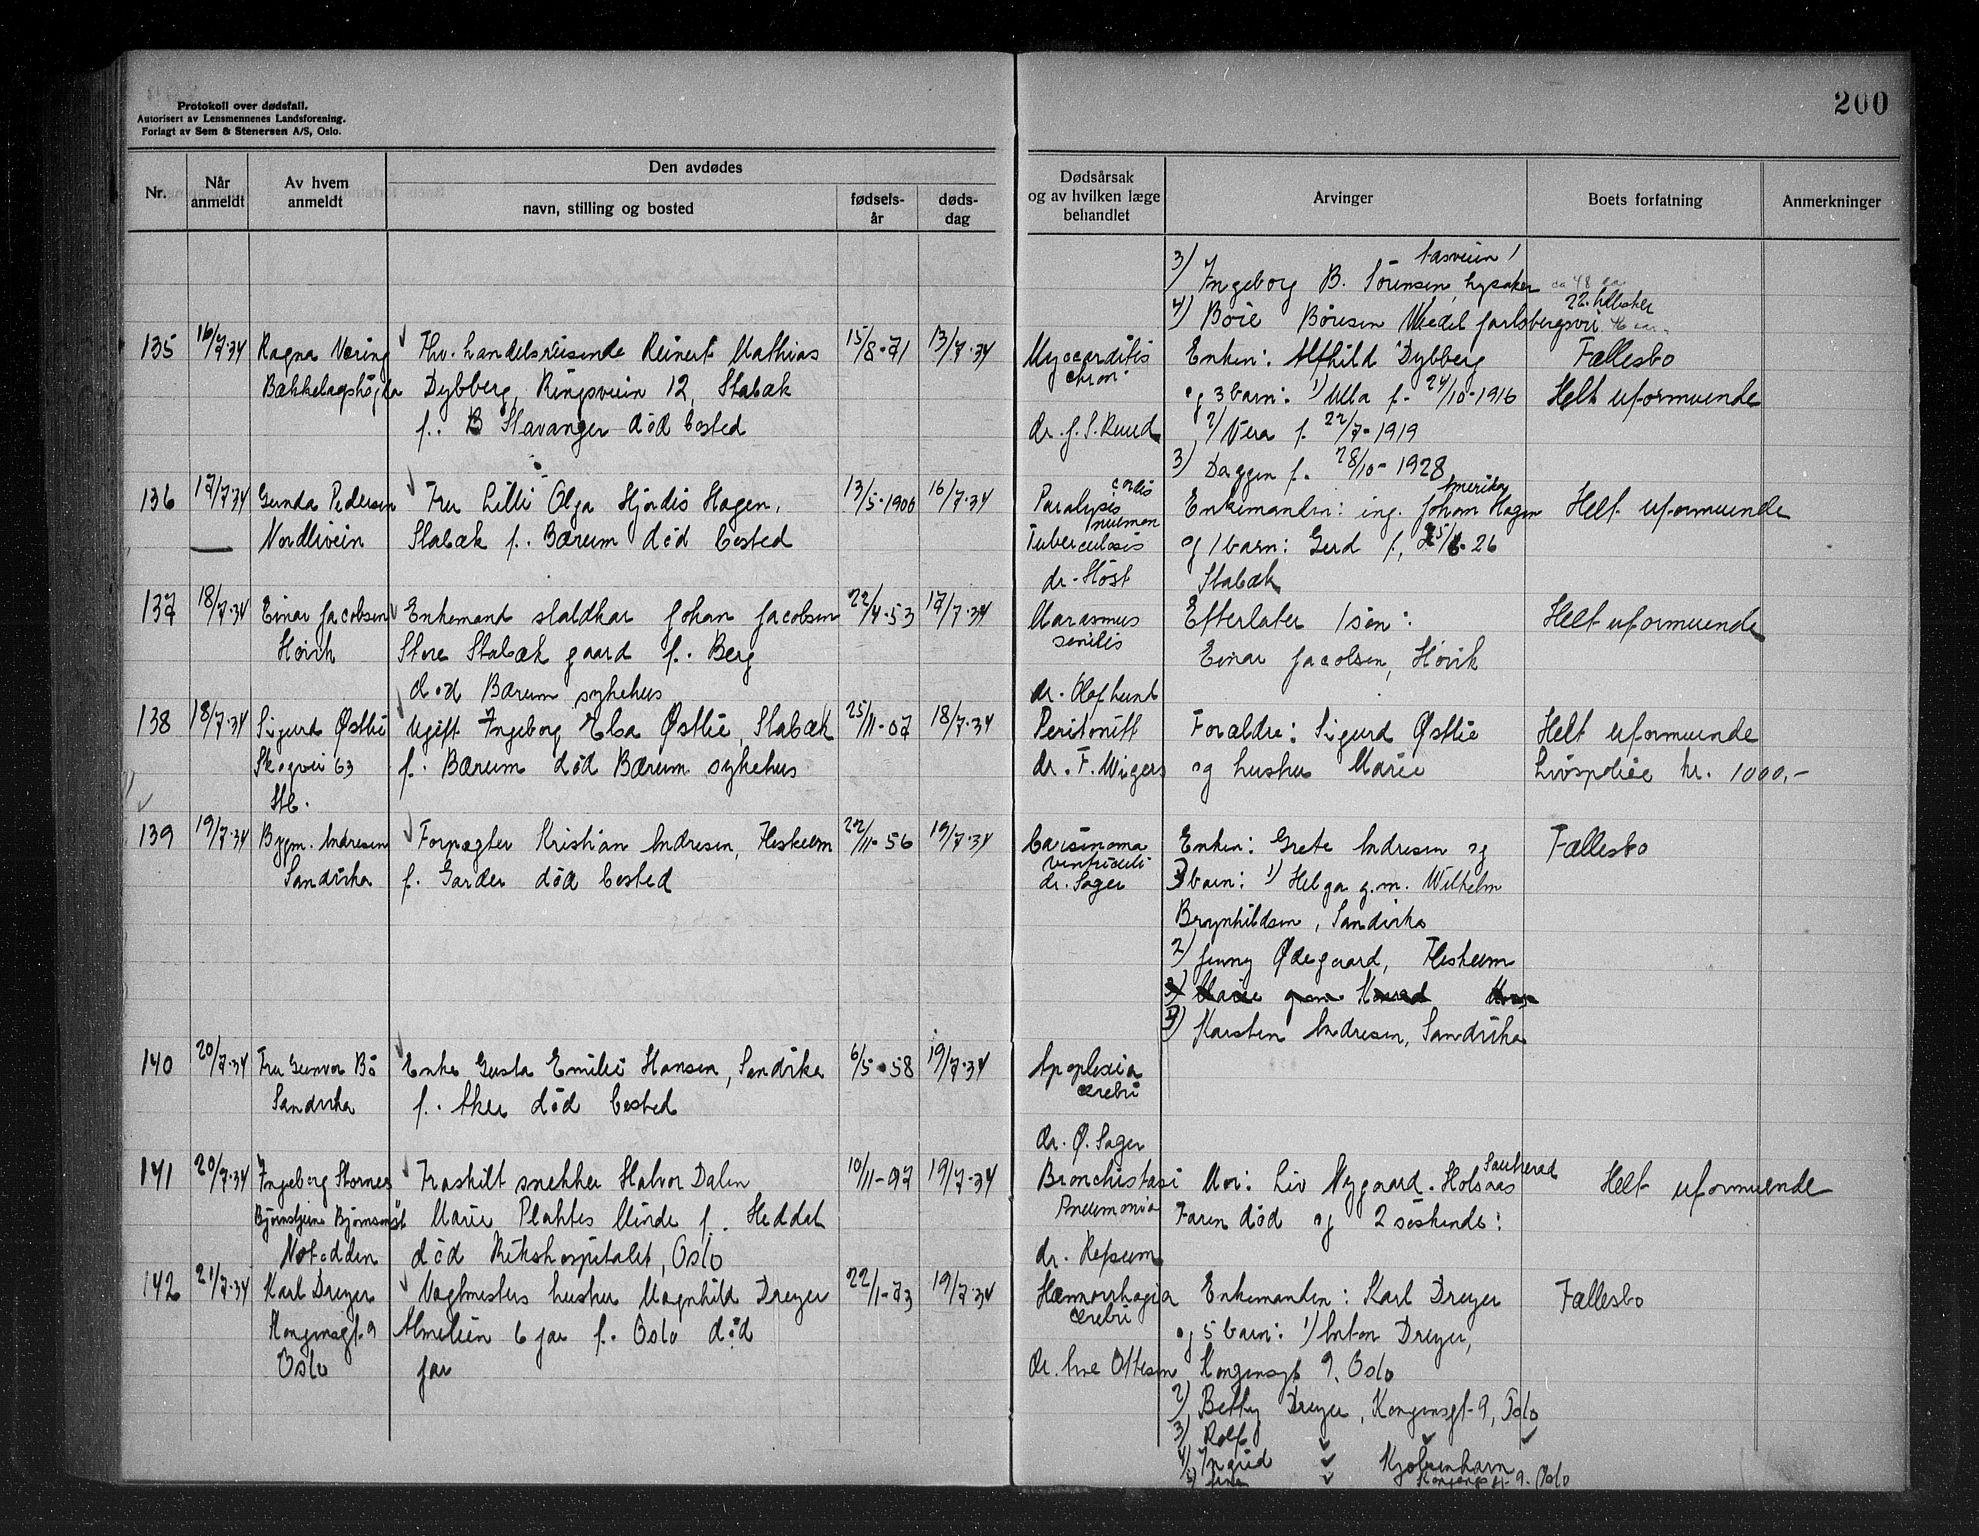 Protokoll over dødsfall.
Autorisert av Lensmennenes Landsforening.
Forlagt av Sem & Stenersen A/S, Oslo.
200
Nr.
Når anmeldt
Av hvem anmeldt
Den avdødes
navn, stilling og bosted
fødselsår
dødsdag
Dødsårsak og av hvilken læge behandlet
Arvinger
Boets forfatning
Anmerkninger
3) Ingeborg B. Sörensen, Lysaker
4) Böie Böresen Wedel Jarlsbergsvei
135 16/7-34 Ragna Næring
Bækkelagshögda
Fhv. handelsreisende Reinert Mathias
Dybberg, Ringsveien 12, Stabæk
f. Stavanger död bosted
15/8-71 13/7-34
Myocarditis
chron.
dr. J. S. Ruud
Enken: Alfhild Dybberg
og 3 barn: 1) Ulla f. 24/10-1916
2) Vera f. 22/7-1919
3) Daggen f. 28/10-1928
Fællesbo
Helt uformuende
136 17/7-34 Gunda Pedersen
Nordliveien
Fru Lilli Olga Hjördis Hagen,
Stabæk f. Bærum död bosted
13/5-1900 16/7-34
Paralysis cordis
Tuberculosis pulmon
dr. Höst
Enkemanden: ing. Johan Hagen Amerika
og 1 barn: Gerd f. 26
Stabæk
Helt uformuende
137 18/7-34 Einar Jacobsen
Hövik
Enkemand staldkar Johan Jacobsen
Store Stabæk gaard f. Berg
död Bærum sykehus
22/4-53 17/7-34
Marasmus
senilis
dr. Olaf Lund
Efterlater 1 sön:
Einar Jacobsen, Hövik
Helt uformuende
138 18/7-34 Sigurd Østlie
Skogvei 63
Stb.
Ugift Ingeborg Elsa Østlie, Stabæk
f. Bærum död Bærum sykehus
25/11-07 18/7-34
Peritonitt
dr. F. Wigers
Forældre: Sigurd Østlie
og hustru Marie
Helt uformuende
Livspolise kr. 1000,-
139 19/7-34 Bygm. Andresen
Sandvika
Forpagter Kristian Andresen, Fleskum
f. Garder död bosted
22/11-56 19/7-34
Carsinoma
ventriculi
dr. Sager
Enken: Grete Andresen og
3 barn: 1) Helga g.m. Wilhelm
Brynhildsen, Sandvika
2) Jenny Ødegaard, Fleskum
3) Marie gm Konrad
3) Karsten Andresen, Sandvika
Fællesbo
140 20/7-34 Fru Gunvor Bö
Sandvika
Enke Gusta Emilie Hansen, Sandvika
f. Aker död bosted
6/5-58 19/7-34
Apoplexia
cerebri
dr. Ø. Sager
141 20/7-34 Ingeborg Stornes
Björnstjerne Björnsonsgt
Notodden
Fraskilt snekker Halvor Dalen
Marie Plahtes Minde f. Heddal
död Rikshospitalet, Oslo
10/11-97 19/7-34
Bronchistasi
Pneumonia
dr. Refsum
Mor: Liv Nygaard. Holsaas Sauherad
Faren död og 2 söskende:
Helt uformuende
142 21/7-34 Karl Dreyer
Kongensgt. 9
Oslo
Vagtmesters hustru Magnhild Dreyer
Almeliien 6 Jar f. Oslo död
Jar
22/1-73 19/7-34
Hæmorrhagia
cerebri
dr. Arne Ottesen
Enkemanden: Karl Dreyer
og 5 barn: 1) Anton Dreyer,
Kongensgt 9, Oslo
2) Betty Dreyer, Kongensgt. 9, Oslo
3) Rolf
4) Ingrid Kjöbenhavn
5) Kongensgt. 9. Oslo
Fællesbo